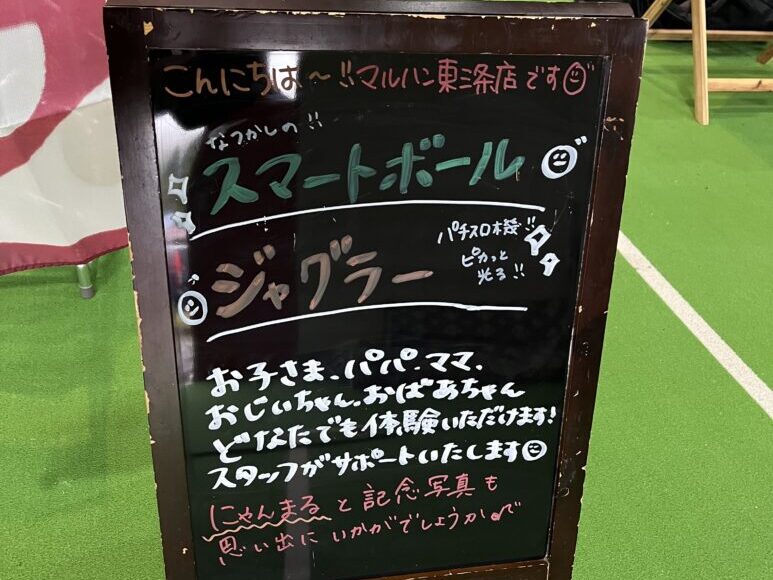 こんにちは〜!!マルハン東三条店です
なつかしの!!
スマートボール
ジャグラー
パチスロ機!!
ピカっと
光る!!
お子さま、パパ・ママ、
おじいちゃん、おばあちゃん
どなたでも体験いただけます!
スタッフがサポートいたします
にゃんまると記念写真も
思い出にいかがでしょうか